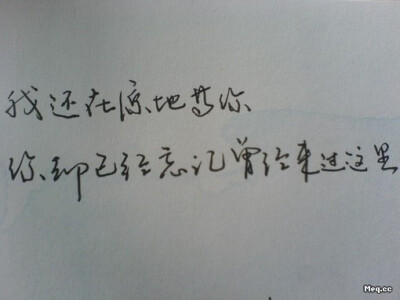 我还在原地等你
你却已经忘记曾经来过这里
Meq.cc